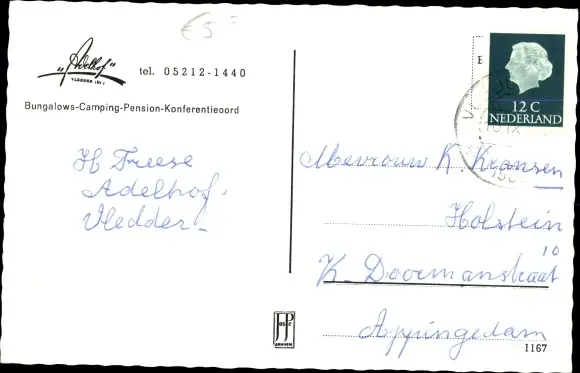 €5
"Adelhof"
VLEDDER (Dr.)
tel. 05212-1440
Bungalows-Camping-Pension-Konferentieoord
H Freese
Adelhof.
Vledder
12 C
NEDERLAND
Mevrouw K. Kransen
Holstein
10
K. Doormanstraat
Appingedam
JosPé
ARNHEM
1167